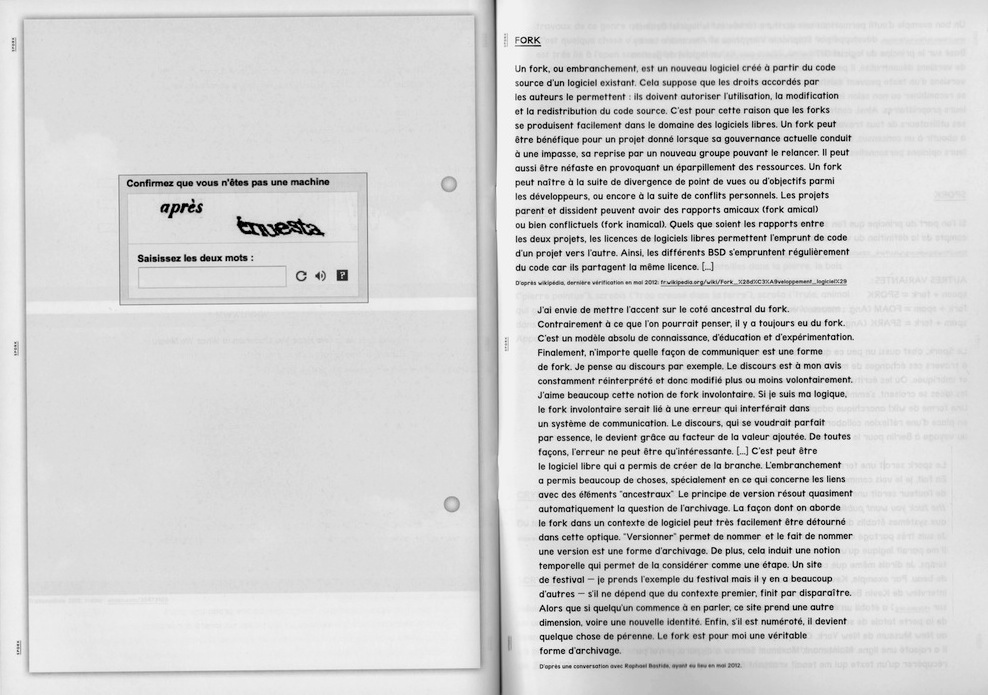 SPORK
Confirmez que vous n'êtes pas une machine
après
Saisissez les deux mots :
?
SPORK
SPORK
SPORK
FORK
Un fork, ou embranchement, est un nouveau logiciel créé à partir du code
source d'un logiciel existant. Cela suppose que les droits accordés par
les auteurs le permettent : ils doivent autoriser l'utilisation, la modification
et la redistribution du code source. C'est pour cette raison que les forks
se produisent facilement dans le domaine des logiciels libres. Un fork peut
être bénéfique pour un projet donné lorsque sa gouvernance actuelle conduit
à une impasse, sa reprise par un nouveau groupe pouvant le relancer. Il peut
aussi être néfaste en provoquant un éparpillement des ressources. Un fork
peut naître à la suite de divergence de point de vues ou d'objectifs parmi
les développeurs, ou encore à la suite de conflits personnels. Les projets
parent et dissident peuvent avoir des rapports amicaux (fork amical)
ou bien conflictuels (fork inamical). Quels que soient les rapports entre
les deux projets, les licences de logiciels libres permettent l'emprunt de code
d'un projet vers l'autre. Ainsi, les différents BSD s'empruntent régulièrement
du code car ils partagent la même licence. [...]
D'après wikipédia, dernière vérification en mai 2012: fr.wikipedia.org/wiki/Fork_%28d%C3%A9veloppement_logiciel%29
J'ai envie de mettre l'accent sur le coté ancestral du fork.
Contrairement à ce que l'on pourrait penser, il y a toujours eu du fork.
C'est un modèle absolu de connaissance, d'éducation et d'expérimentation.
Finalement, n'importe quelle façon de communiquer est une forme
de fork. Je pense au discours par exemple. Le discours est à mon avis
constamment réinterprété et donc modifié plus ou moins volontairement.
J'aime beaucoup cette notion de fork involontaire. Si je suis ma logique,
le fork involontaire serait lié à une erreur qui interférait dans
un système de communication. Le discours, qui se voudrait parfait
par essence, le devient grâce au facteur de la valeur ajoutée. De toutes
façons, l'erreur ne peut être qu'intéressante. [...] C'est peut être
le logiciel libre qui a permis de créer de la branche. L'embranchement
a permis beaucoup de choses, spécialement en ce qui concerne les liens
avec des éléments "ancestraux" Le principe de version résout quasiment
automatiquement la question de l'archivage. La façon dont on aborde
le fork dans un contexte de logiciel peut très facilement être détourné
dans cette optique. "Versionner" permet de nommer et le fait de nommer
une version est une forme d'archivage. De plus, cela induit une notion
temporelle qui permet de la considérer comme une étape. Un site
de festival — je prends l'exemple du festival mais il y en a beaucoup
d'autres — s'il ne dépend que du contexte premier, finit par disparaître.
Alors que si quelqu'un commence à en parler, ce site prend une autre
dimension, voire une nouvelle identité. Enfin, s'il est numéroté, il devient
quelque chose de pérenne. Le fork est pour moi une véritable
forme d'archivage.
D'après une conversation avec Raphaël Bastide, ayant eu lieu en mai 2012.